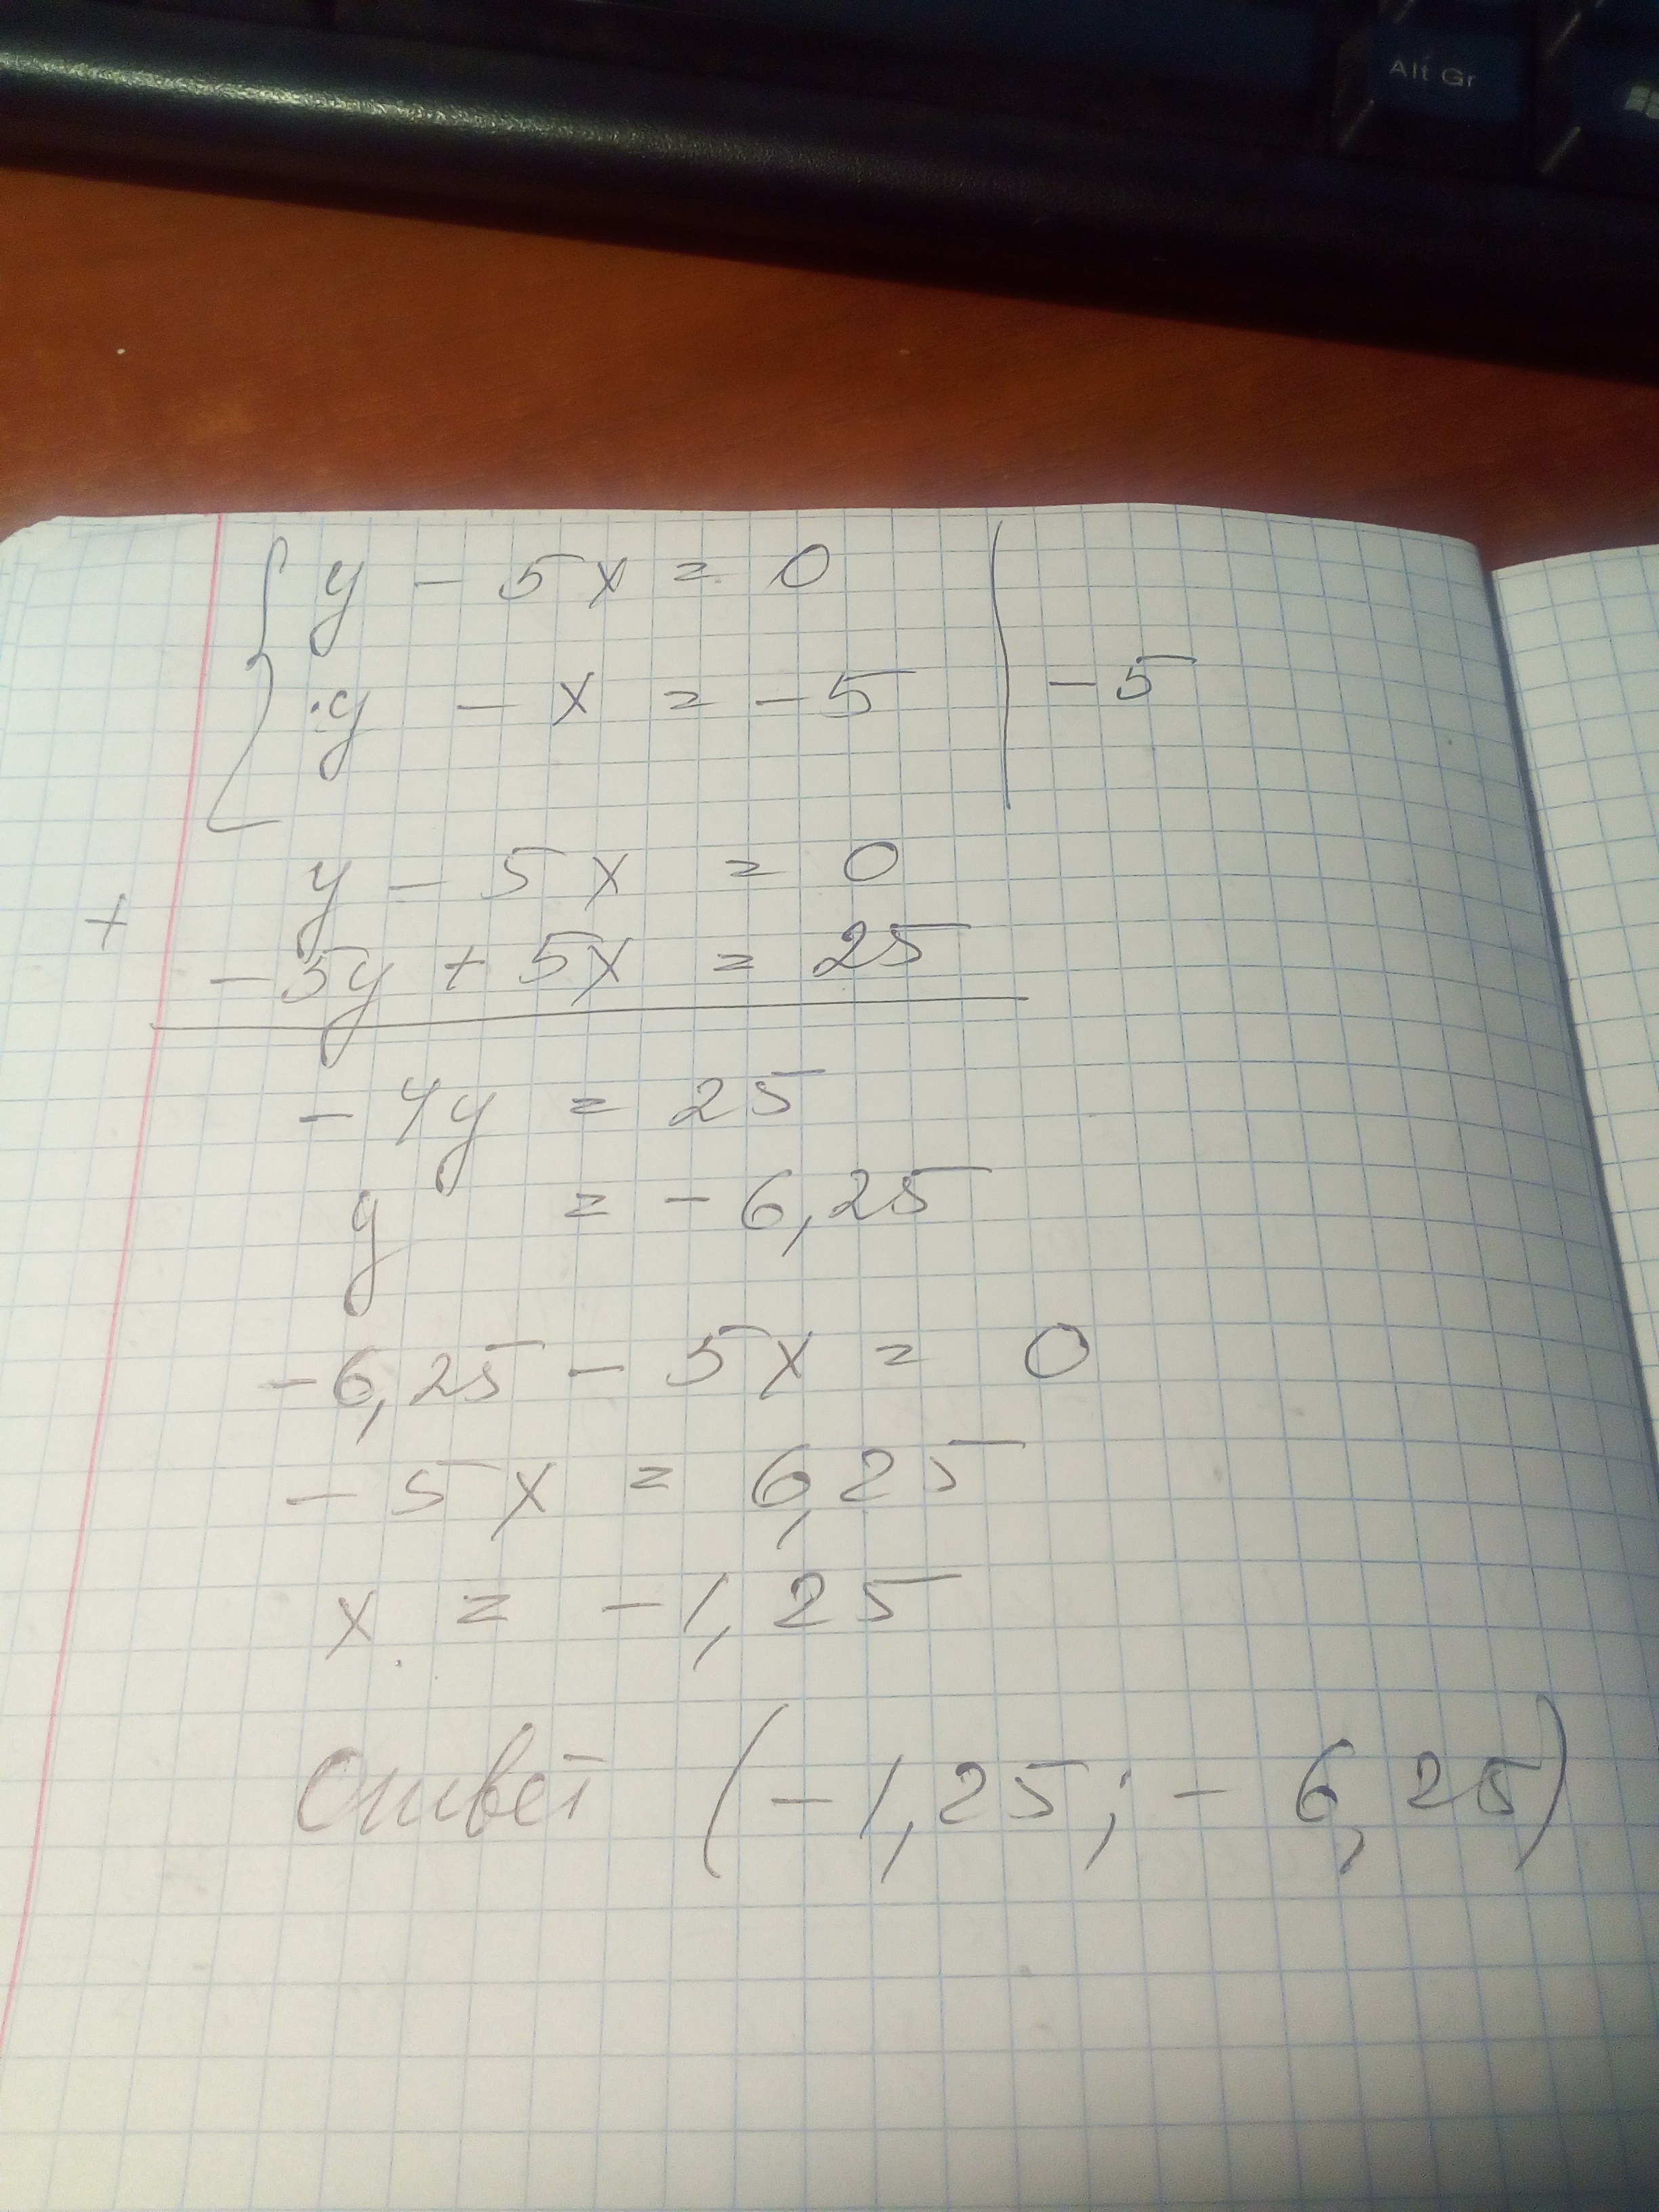 Alt Gr
y - 5x = 0
y - x = -5 | -5
y - 5x = 0
+
-5y + 5x = 25
-4y = 25
y = -6,25
-6,25 - 5x = 0
-5x = 6,25
x = -1,25
Ответ (-1,25; -6,25)